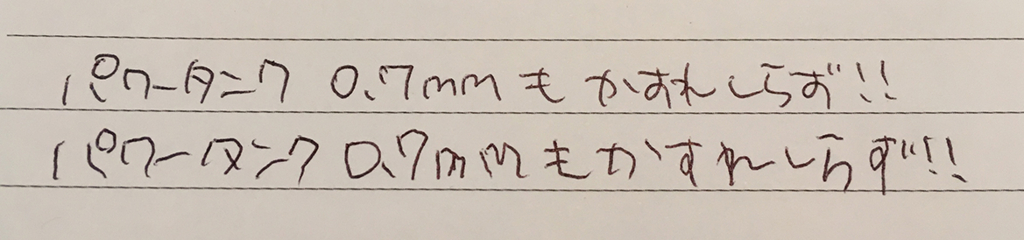 パワータンク 0.7mmもかすれしらず!!
パワータンク 0.7mmもかすれしらず!!